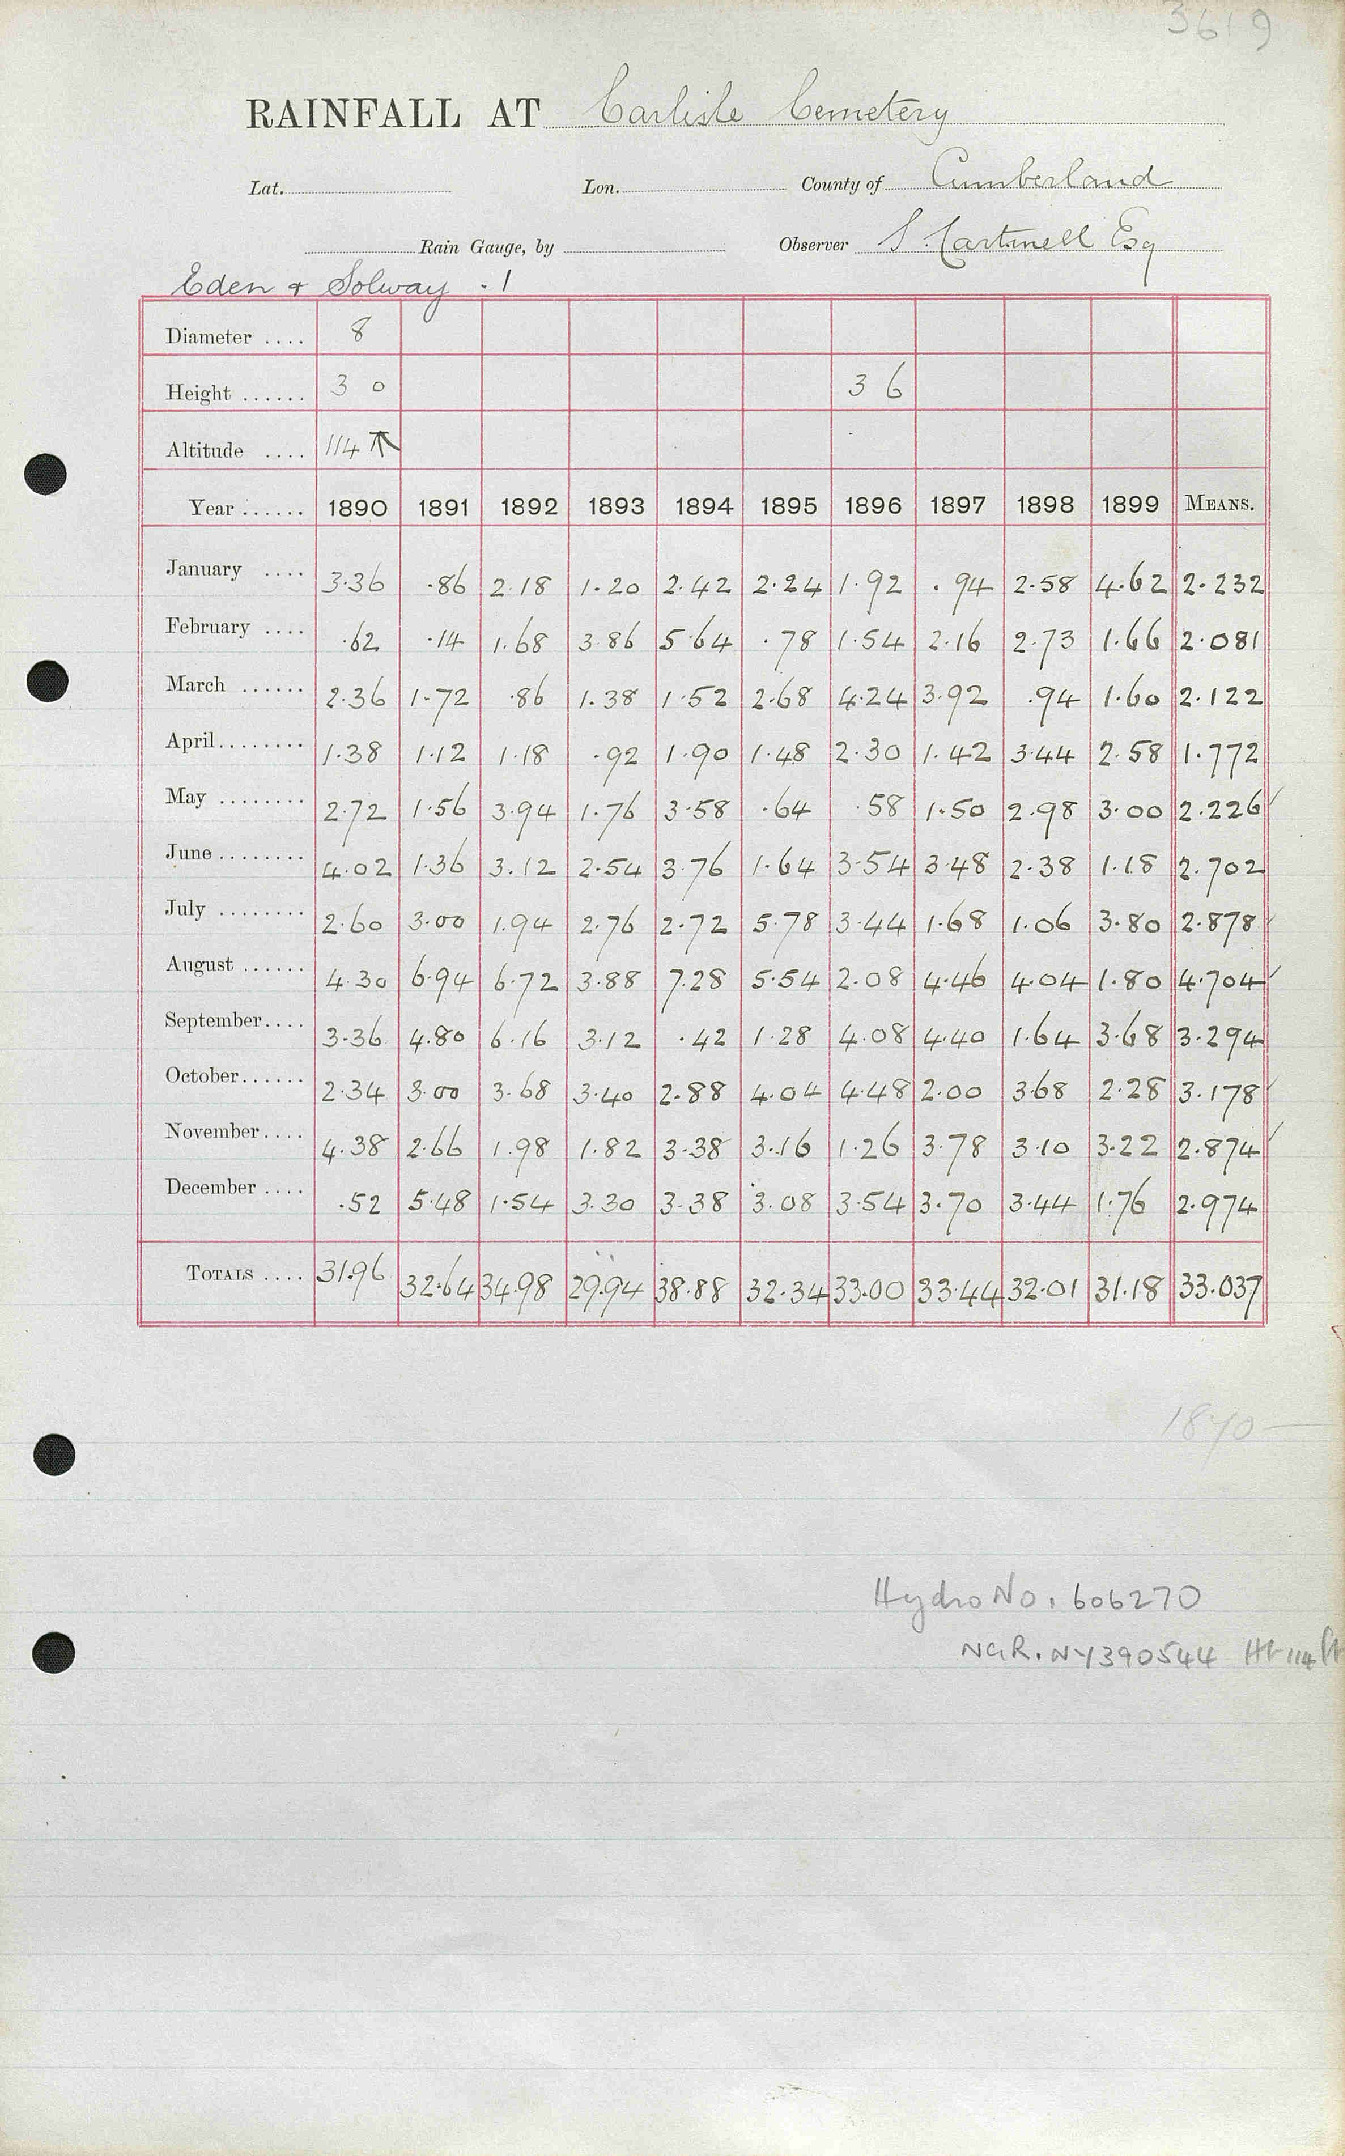 3619
RAINFALL AT Carlisle Cemetery
Lat. Lon. County of Cumberland
Rain Gauge, by Observer S. Cartmell Esq
Eden & Solway . 1
Diameter .... 8
Height ...... 3 0 3 6
Altitude .... 114 ↑
Year ...... 1890 1891 1892 1893 1894 1895 1896 1897 1898 1899 MEANS.
January .... 3.36 .86 2.18 1.20 2.42 2.24 1.92 .94 2.58 4.62 2.232
February .... .62 .14 1.68 3.86 5.64 .78 1.54 2.16 2.73 1.66 2.081
March ...... 2.36 1.72 .86 1.38 1.52 2.68 4.24 3.92 .94 1.60 2.122
April........ 1.38 1.12 1.18 .92 1.90 1.48 2.30 1.42 3.44 2.58 1.772
May ........ 2.72 1.56 3.94 1.76 3.58 .64 .58 1.50 2.98 3.00 2.226
June ........ 4.02 1.36 3.12 2.54 3.76 1.64 3.54 3.48 2.38 1.18 2.702
July ........ 2.60 3.00 1.94 2.76 2.72 5.78 3.44 1.68 1.06 3.80 2.878
August ...... 4.30 6.94 6.72 3.88 7.28 5.54 2.08 4.46 4.04 1.80 4.704
September.... 3.36 4.80 6.16 3.12 .42 1.28 4.08 4.40 1.64 3.68 3.294
October...... 2.34 3.00 3.68 3.40 2.88 4.04 4.48 2.00 3.68 2.28 3.178
November.... 4.38 2.66 1.98 1.82 3.38 3.16 1.26 3.78 3.10 3.22 2.874
December .... .52 5.48 1.54 3.30 3.38 3.08 3.54 3.70 3.44 1.76 2.974
TOTALS .... 31.96 32.64 34.98 29.94 38.88 32.34 33.00 33.44 32.01 31.18 33.037
1870—
Hydro No. 606270
NGR. NY390544 Ht 114 ft